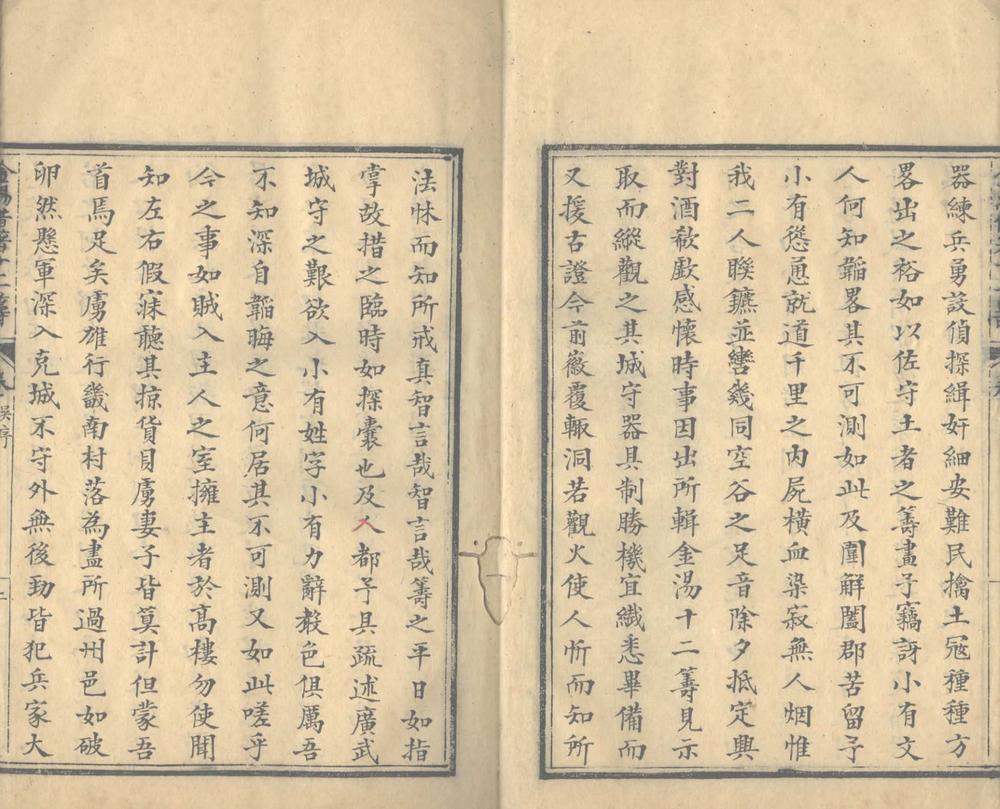 器練兵勇設偵探緝奸細安難民擒土冦種種方
畧出之裕如以佐守土者之籌畫予竊訝小有文
人何知韜畧其不可測如此及圍解闔郡苦留予
小有慫恿就道千里之内屍横血染寂無人烟惟
我二人聮鑣並轡幾同空谷之足音除夕抵定興
對酒欷歔感懷時事因出所輯金湯十二籌見示
取而縱觀之其城守器具制勝機宜纎悉畢備而
又援古證今前徽覆轍洞若觀火使人忻而知所
法怵而知所戒真智言哉智言哉籌之平日如指
掌故措之臨時如探囊也及入都予具疏述廣武
城守之艱欲入小有姓字小有力辭聲色俱厲吾
不知深自韜晦之意何居其不可測又如此嗟乎
今之事如賊入主人之室擁主者於髙樓勿使聞
知左右假寐聽其掠貨貝虜妻子皆莫計但蒙吾
首焉足矣虜雄行畿南村落為盡所過州邑如破
卵然懸軍深入克城不守外無後勁皆犯兵家大
金湯借箸十二籌